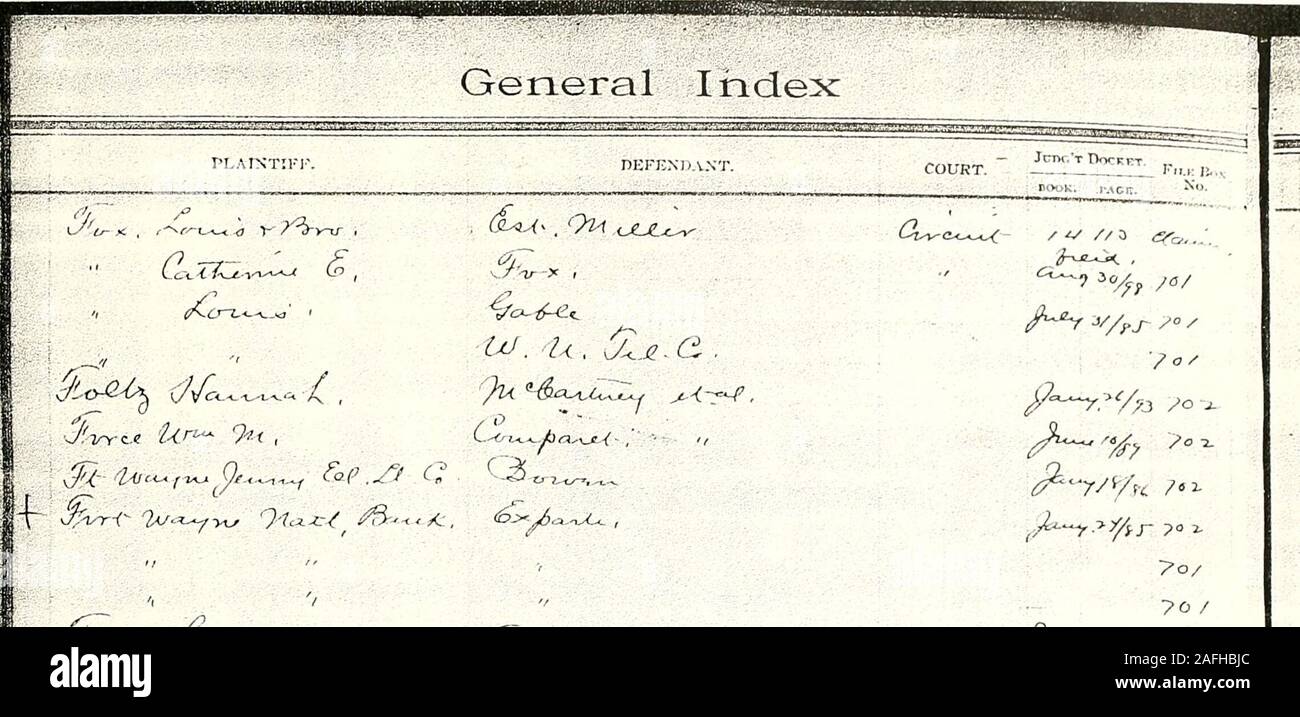 General Index
PLAINTIFF. DEFENDANT. COURT. JUDG'T DOCKET. FILE BOX
BOOK. PAGE. No.
Fox, Louis & Bro. Est. Miller Circuit 14 113 Claim
" Catherine E, Fox, " Aug 30/98 701
" Louis. Gable July 31/85 701
" " W. U. Tel. Co. 701
Foltz Hannah, McCartney et al. Jany. 26/93 702
Force Wm M, Comparet, " June 10/89 702
Ft Wayne Jenny El. Lt Co Bowen Jany 18/86 702
+ Fort Wayne Natl, Bank, Exparte, Jany. 27/85 702
" " " 701
" " " 701
alamy
Image ID: 2AFHBJC
www.alamy.com